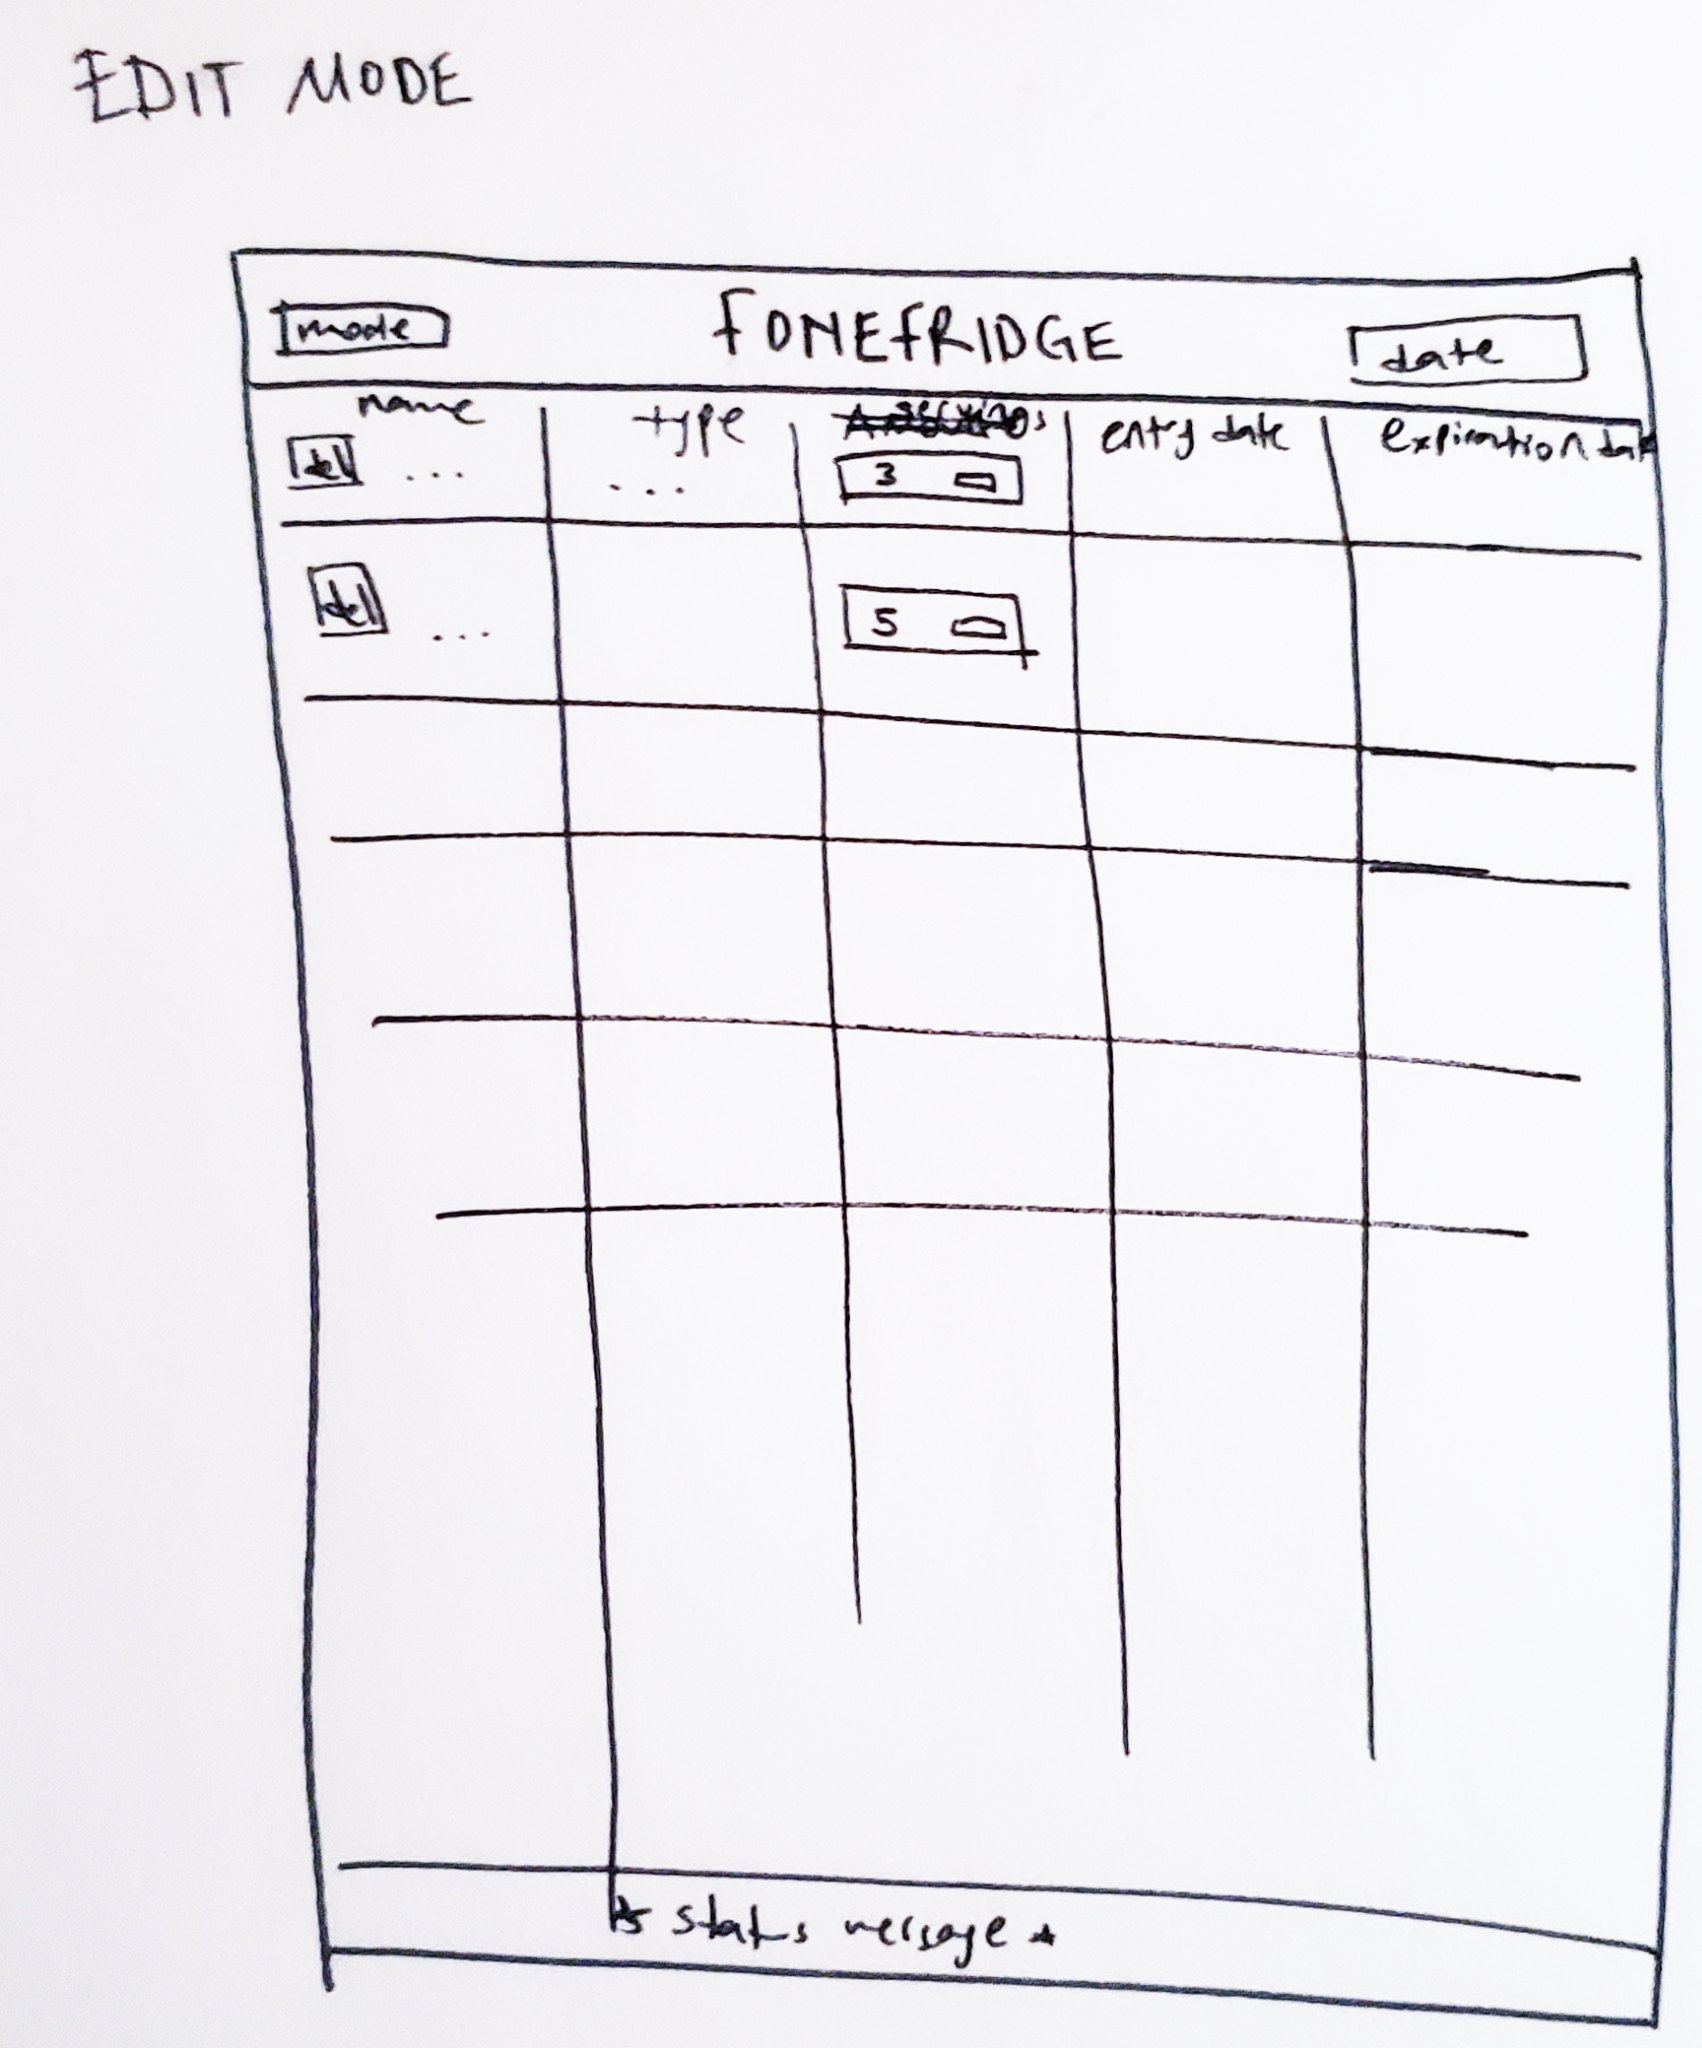 EDIT MODE
mode FONEFRIDGE date
name type servings entry date expiration date
del ... ... 3
del ... 5
* status message *